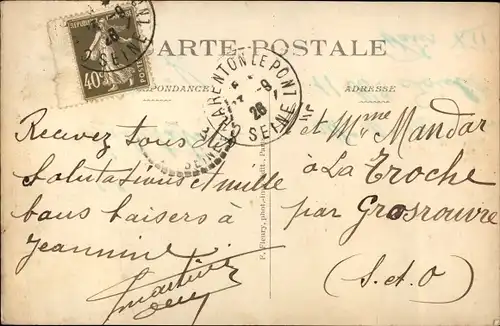 CARTE-POSTALE
CORRESPONDANCE
ADRESSE
CHARENTON LE PONT
9
26
SEINE
40c
POSTES
Recevez tous
salutations et mille
bons baisers à
Jeannine
F. Fleury, phot.-imp.-édit., Paris
et Mme Mandar
à La Troche
par Grosrouvre
(S. et O)